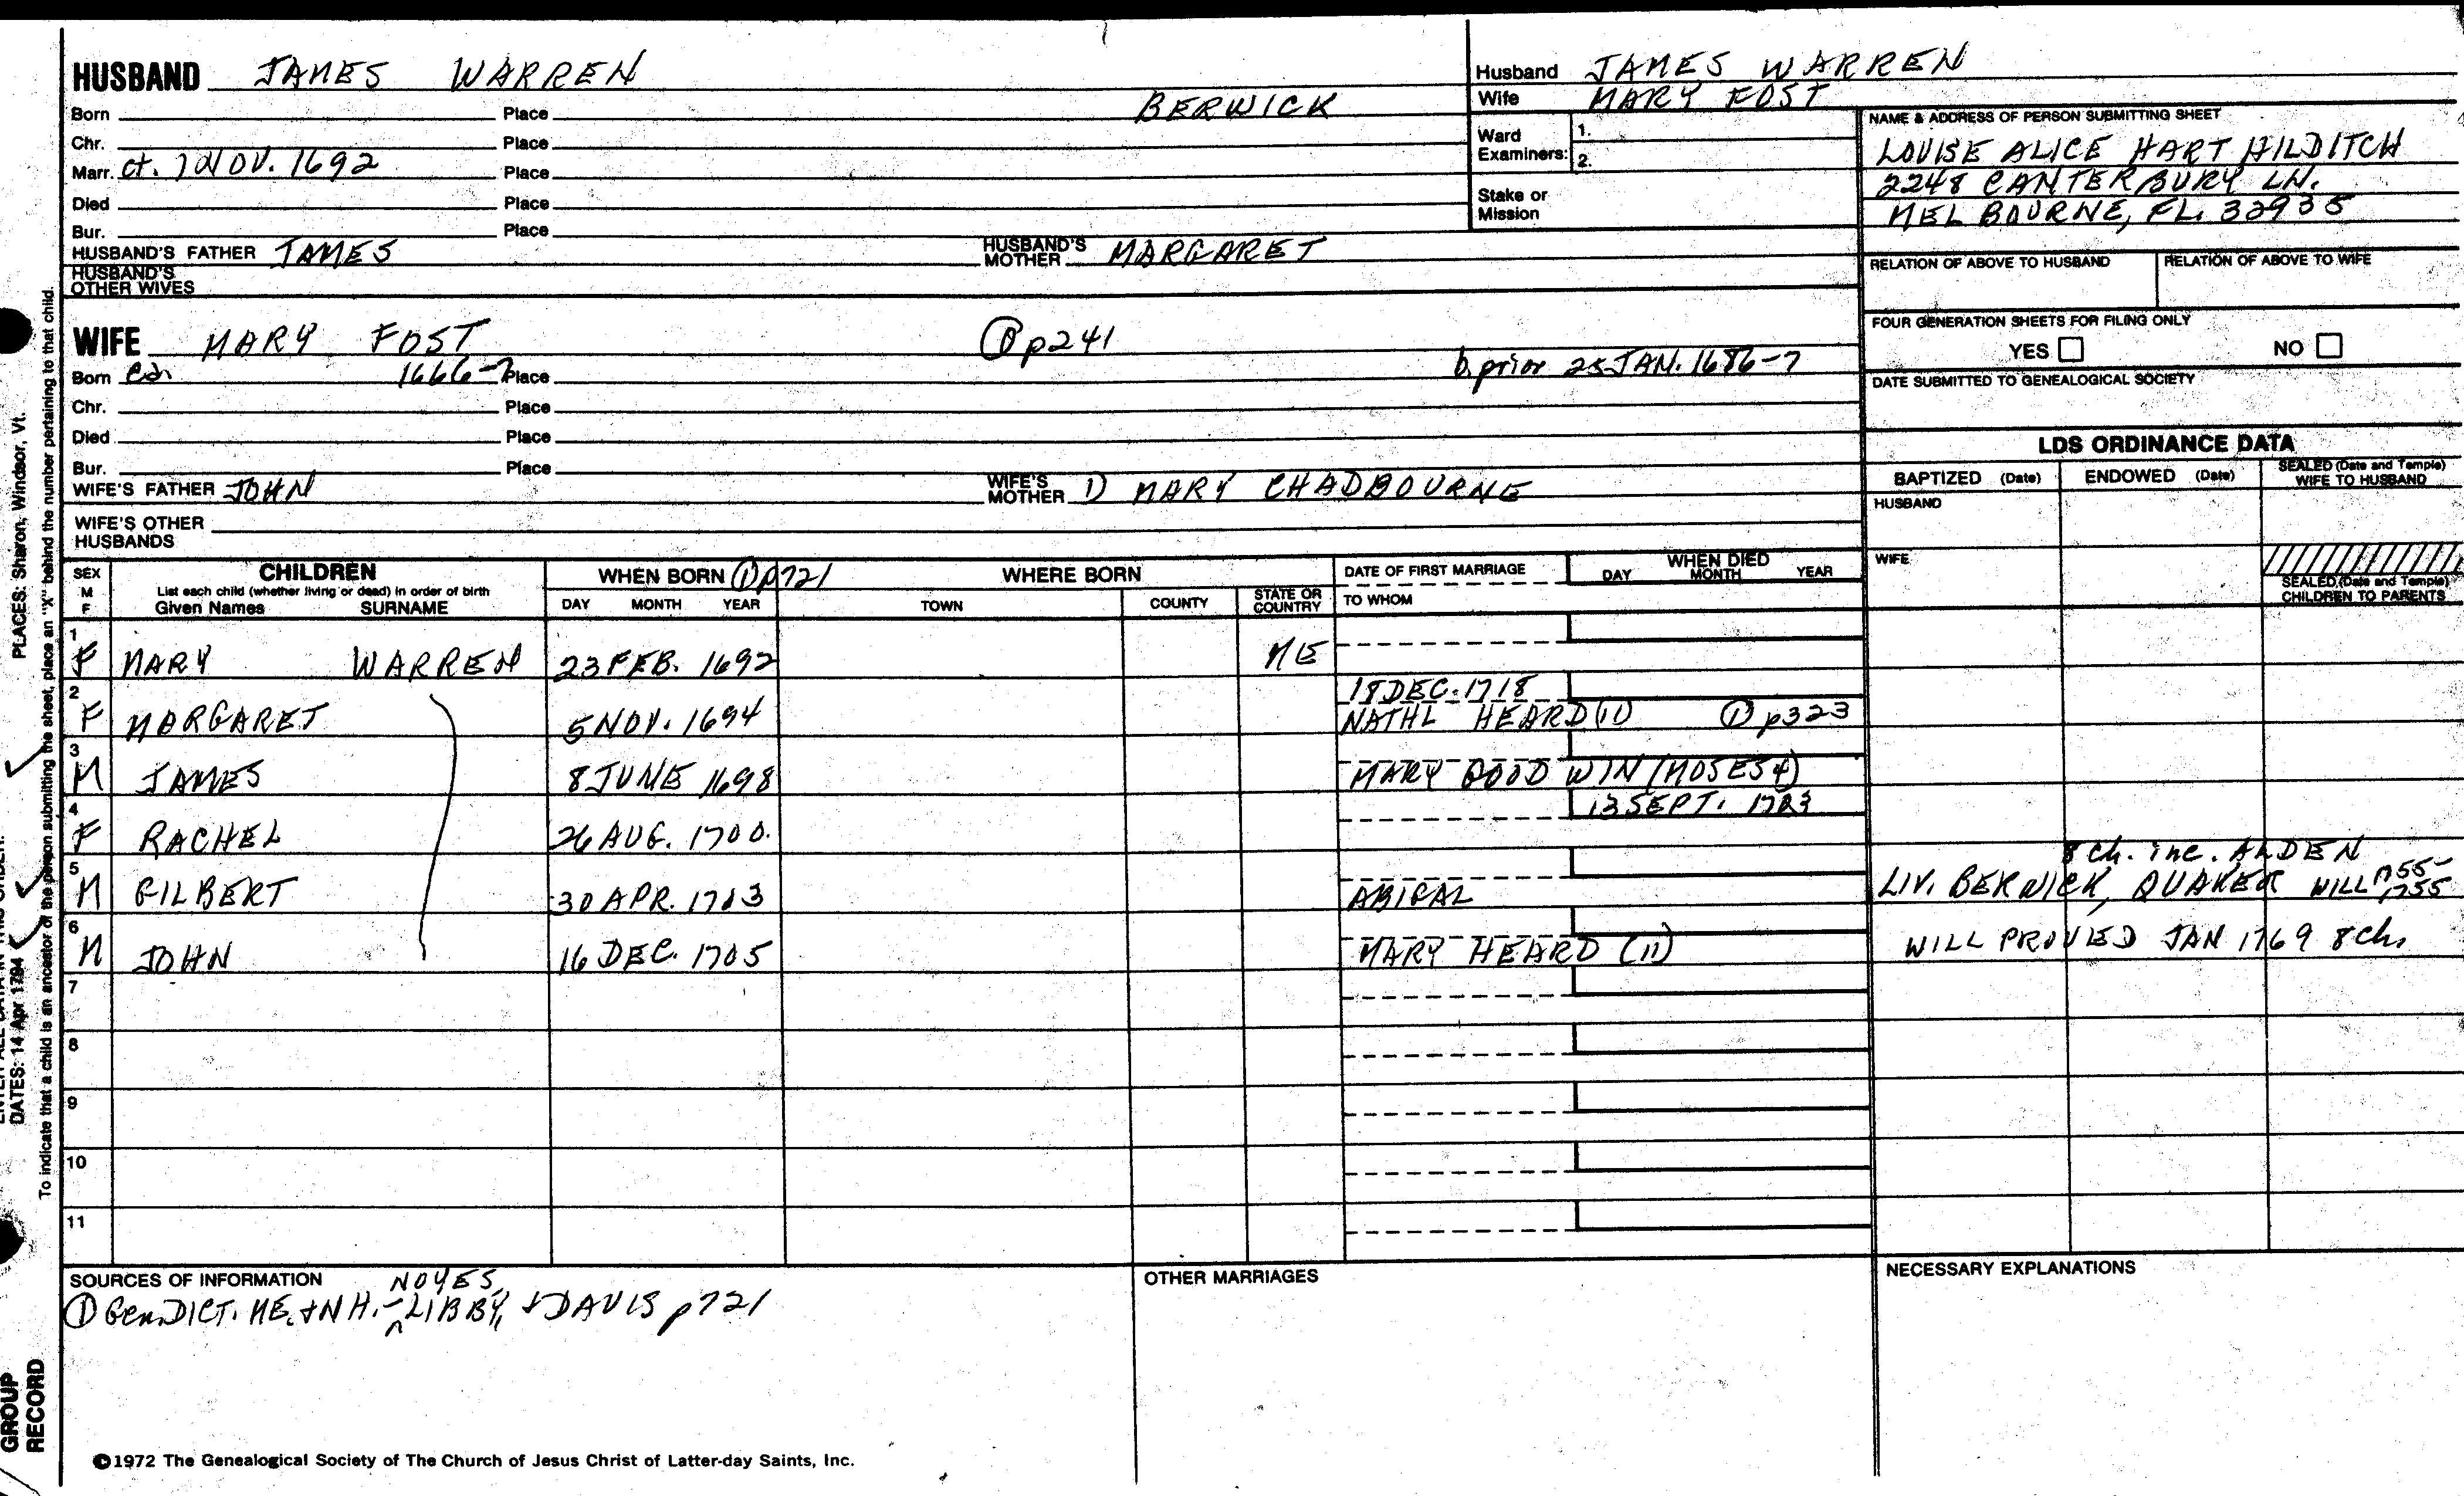 HUSBAND JAMES WARREN
Born Place BERWICK
Chr. Place
Marr. ct. 1 NOV. 1692 Place
Died Place
Bur. Place
HUSBAND'S FATHER JAMES HUSBAND'S MOTHER MARGARET
HUSBAND'S OTHER WIVES
Husband JAMES WARREN
Wife MARY FOST
Ward Examiners: 1.
2.
Stake or Mission
NAME & ADDRESS OF PERSON SUBMITTING SHEET
LOUISE ALICE HART HILDITCH
2248 CANTERBURY LN.
MELBOURNE, FL. 32935
RELATION OF ABOVE TO HUSBAND RELATION OF ABOVE TO WIFE
FOUR GENERATION SHEETS FOR FILING ONLY
YES NO
DATE SUBMITTED TO GENEALOGICAL SOCIETY
WIFE MARY FOST ① p241
Born ca 1666-7 Place b. prior 25 JAN. 1686-7
Chr. Place
Died Place
Bur. Place
WIFE'S FATHER JOHN WIFE'S MOTHER 1) MARY CHADBOURNE
WIFE'S OTHER HUSBANDS
LDS ORDINANCE DATA
BAPTIZED (Date) ENDOWED (Date) SEALED (Date and Temple) WIFE TO HUSBAND
HUSBAND
WIFE
SEALED (Date and Temple) CHILDREN TO PARENTS
SEX M F CHILDREN
List each child (whether living or dead) in order of birth
Given Names SURNAME
WHEN BORN ① p721 WHERE BORN
DAY MONTH YEAR TOWN COUNTY STATE OR COUNTRY
DATE OF FIRST MARRIAGE
TO WHOM
WHEN DIED
DAY MONTH YEAR
1 F MARY WARREN 23 FEB. 1692 ME
2 F MARGARET 5 NOV. 1694 18 DEC. 1718
NATHL HEARD (11) ① p323
3 M JAMES 8 JUNE 1698 MARY GOODWIN (MOSES 4)
4 F RACHEL 26 AUG. 1700. 13 SEPT. 1723
5 M GILBERT 30 APR. 1703 ABIGAL
8 ch. inc. ALDEN
LIV. BERWICK, QUAKER WILL 1755-
1755
6 M JOHN 16 DEC. 1705 MARY HEARD (11) WILL PROVED JAN 1769 8 ch.
7
8
9
10
11
SOURCES OF INFORMATION
① Gen. DICT. ME. + N H. - NOYES, LIBBY, + DAVIS p721
OTHER MARRIAGES
NECESSARY EXPLANATIONS
©1972 The Genealogical Society of The Church of Jesus Christ of Latter-day Saints, Inc.
PLACES: Sharon, Windsor, Vt.
DATES: 14 Apr 1794
To indicate that a child is an ancestor of the person submitting the sheet, place an "X" behind the number pertaining to that child.
GROUP
RECORD